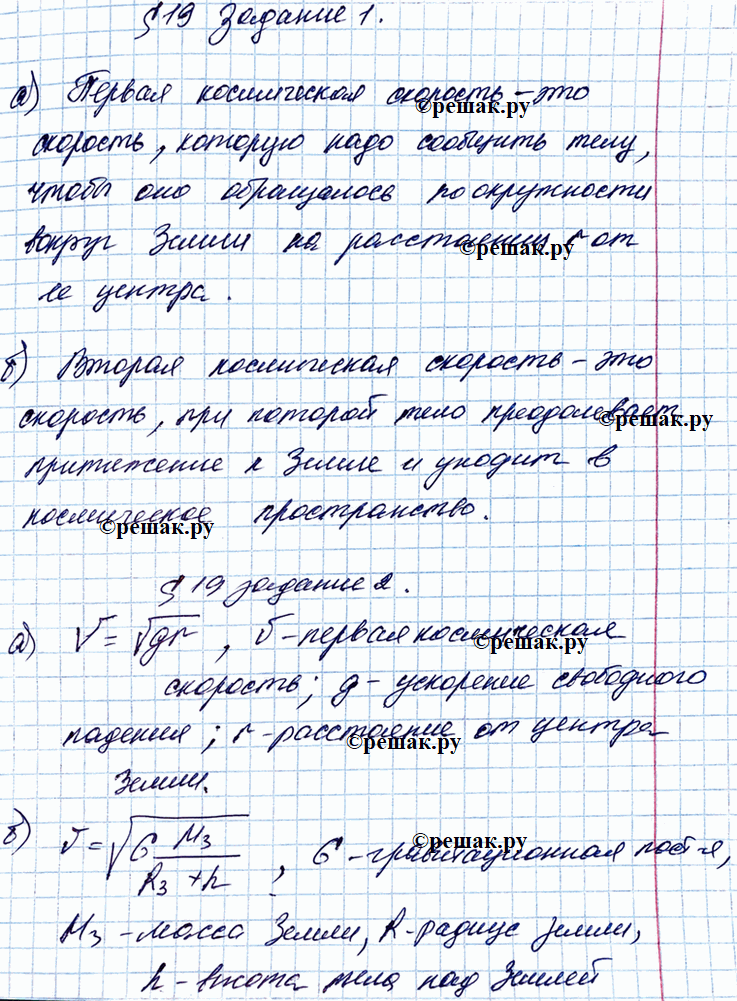 § 19 Задание 1.
а) Первая космическая скорость – это
скорость, которую надо сообщить телу,
чтобы оно обращалось по окружности
вокруг Земли на расстоянии r от
ее центра.
б) Вторая космическая скорость – это
скорость, при которой тело преодолевает
притяжение к Земле и уходит в
космическое пространство.
§ 19 задание 2.
а) v = √gr, v – первая космическая
скорость; g – ускорение свободного
падения; r – расстояние от центра
Земли.
б) v = √(G Mз / (Rз + h)), G – гравитационная пост-я,
Mз – масса Земли, R – радиус Земли,
h – высота тела над Землей
©решак.ру
©решак.ру
©решак.ру
©решак.ру
©решак.ру
©решак.ру
©решак.ру